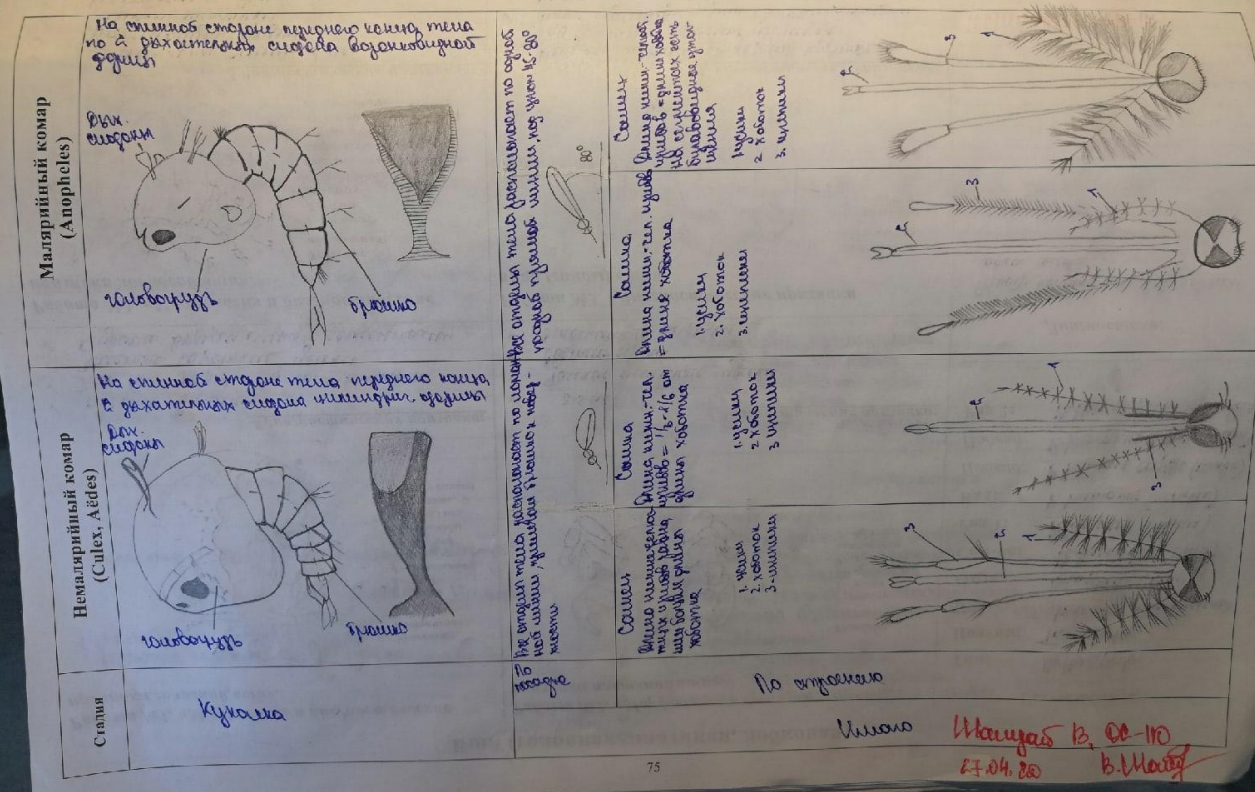 Стадия
Немалярийный комар
(Culex, Aëdes)
Малярийный комар
(Anopheles)
Куколка
На спинной стороне тела переднего конца
2 дыхательных сифона цилиндрич. формы
Дых.
сифоны
головогрудь
брюшко
На спинной стороне переднего конца тела
по 2 дыхательных сифона воронковидной
формы
Дых.
сифоны
головогрудь
брюшко
Имаго
По
посадке
Все отделы тела располагают по ломан-
ной линии, прижимая брюшко к повер-
хности
Все отделы тела располагает по одной
прямой линии, под углом 45-80°
80°
По строению
Самец
Длина нижнечелюс-
тных щупов равна
или больше длины
хоботка
1. усики
2. хоботок
3-щупики
3
2
1
Самка
Длина нижн.-чел.
щупов = 1/3-1/6 от
длины хоботка
1. усики
2 хоботок
3 щупики
1
2
3
Самка
Длина нижн.-чел. щупов
= длине хоботка
1. усики
2. хоботок
3. щупики
3
2
1
Самец
Длина нижн.-челюст.
щупов = длине хоботка
на сегментах есть
булавовидные утол-
щения
1 усики
2 хоботок
3. щупики
3
1
2
75
27.04.20